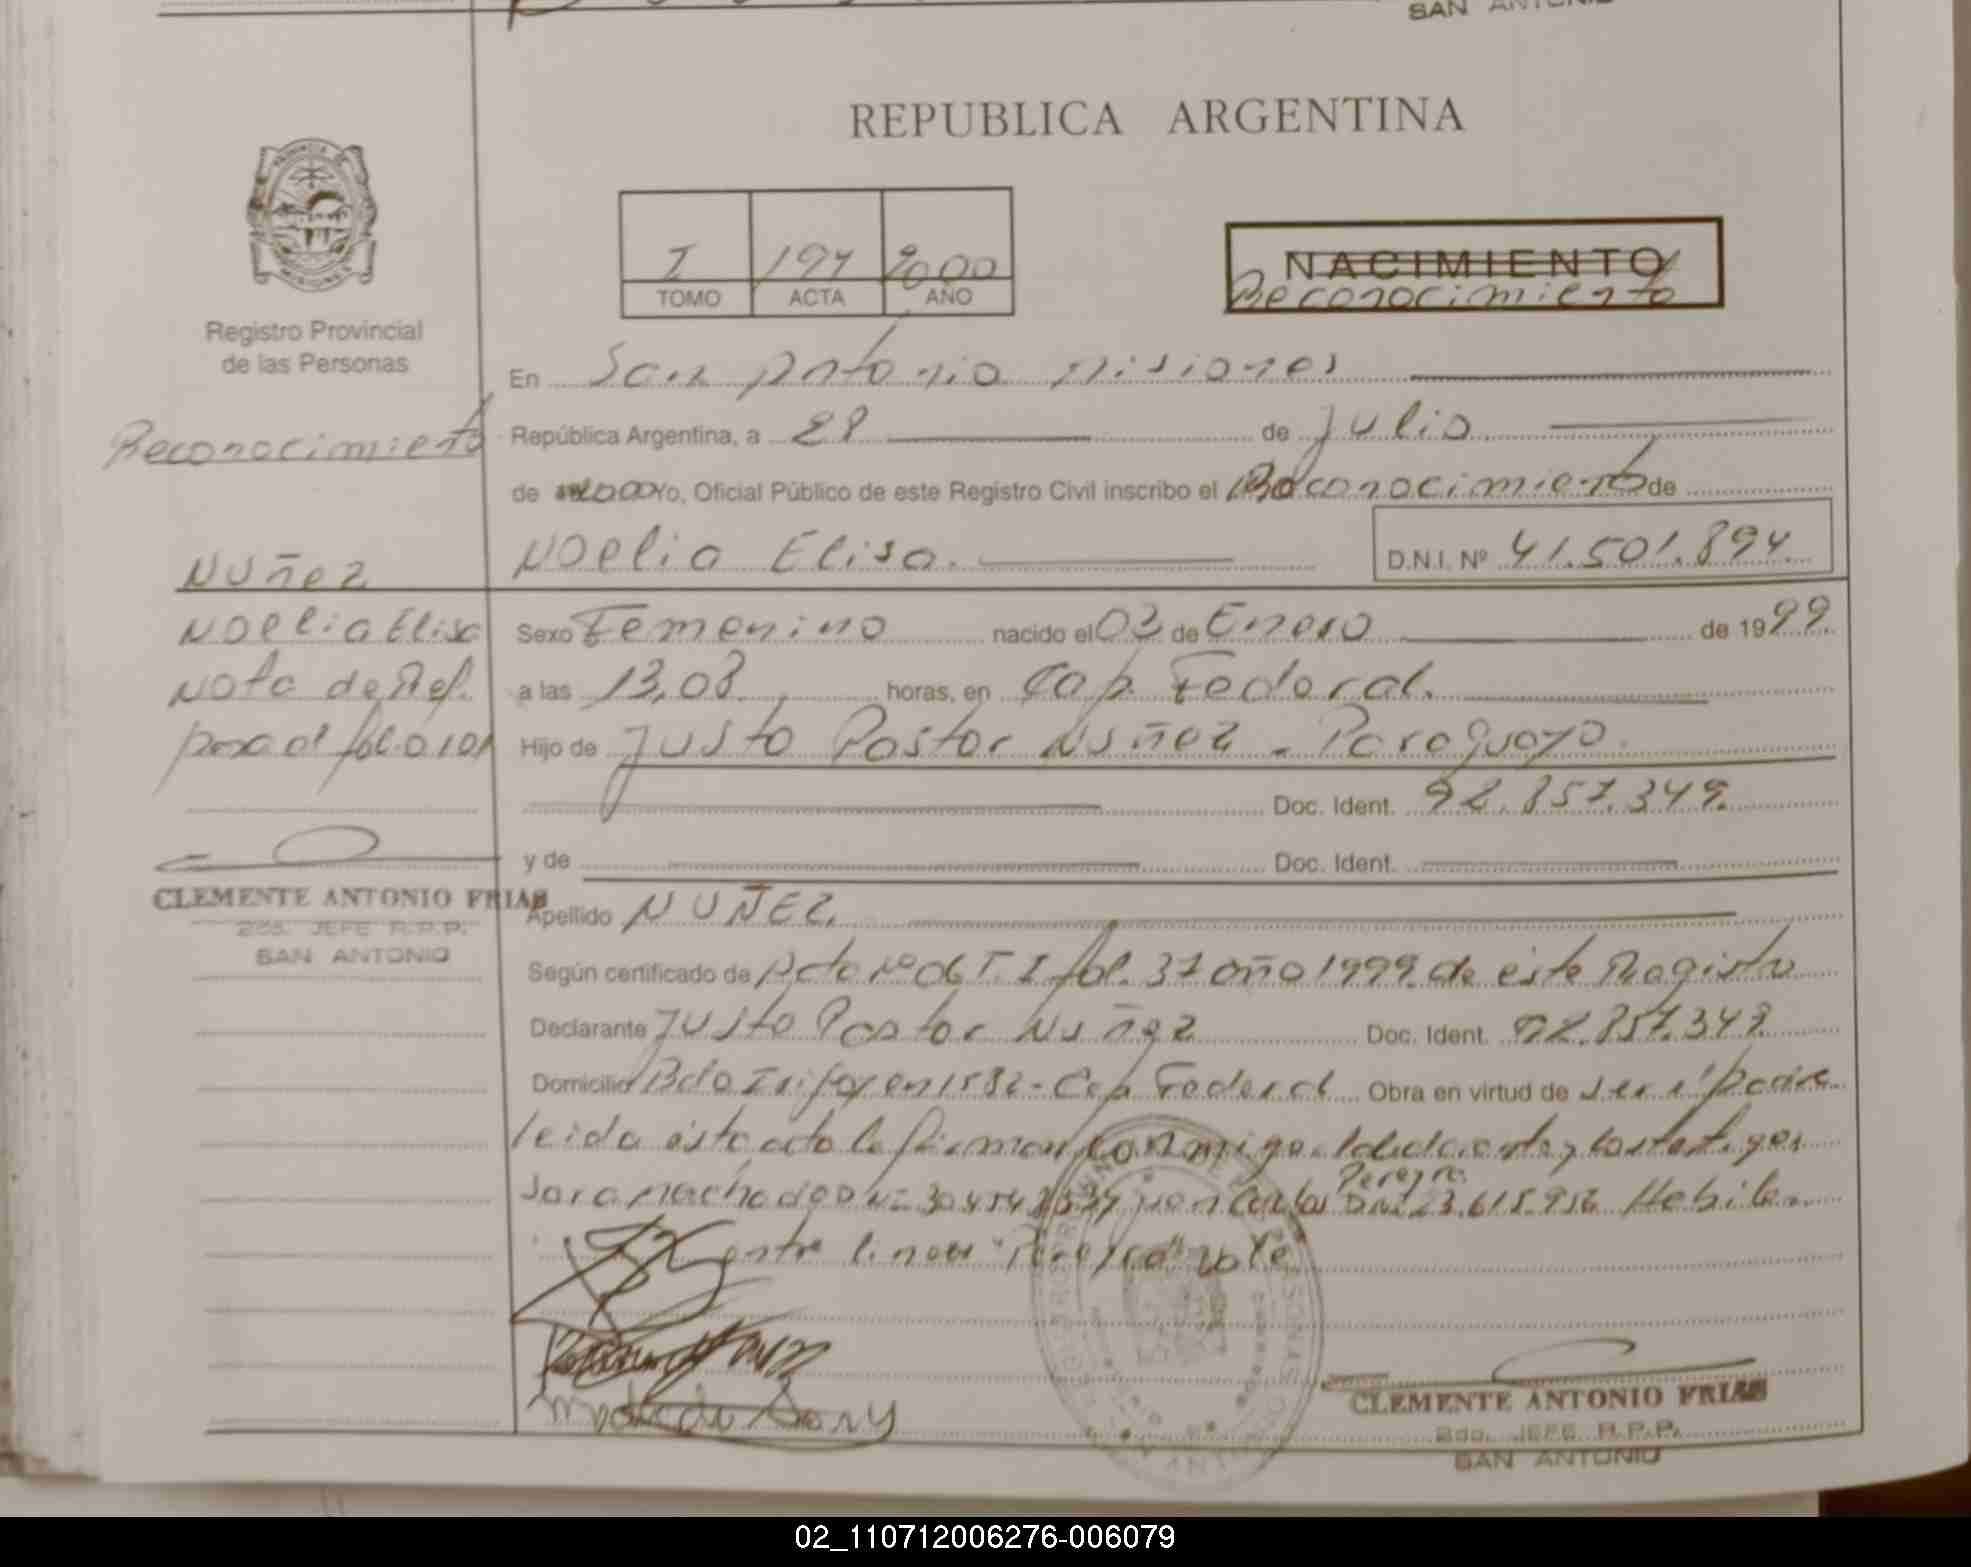 SAN ANTONIO
REPUBLICA ARGENTINA
PROVINCIA DE
MISIONES
Registro Provincial
de las Personas
I 194 2000
TOMO ACTA AÑO
NACIMIENTO
Reconocimiento
En San Antonio Misiones
República Argentina, a 28 de Julio
de 2000 Yo, Oficial Público de este Registro Civil inscribo el Reconocimiento de
Noelia Elisa. D.N.I. Nº 41.501.894
Sexo Femenino nacido el 03 de Enero de 1999
a las 13,08 horas, en Cap. Federal.
Hijo de Justo Pastor Nuñez - Paraguayo.
Doc. Ident. 92.857.349.
y de Doc. Ident.
Apellido NUÑEZ.
Según certificado de Acta Nº 06 T. I fol. 37 año 1999. de este Registro
Declarante Justo Pastor Nuñez Doc. Ident. 92.857.349
Domicilio Bdo Irifoyen 1582 - Cap Federal Obra en virtud de ser el padre
leida esta acta la firman conmigo y los testigos
Sara Machado DNI Juan Carlos Pereyra DNI 23.615.956 Habiles.
entre lineas "Pereyra" vale
Machado Sara
CLEMENTE ANTONIO FRIAS
2do. JEFE R.P.P.
SAN ANTONIO
Reconocimiento
Nuñez
Noelia Elisa
Nota de Ref.
pasa al folio 101
CLEMENTE ANTONIO FRIAS
2do. JEFE R.P.P.
SAN ANTONIO
02_110712006276-006079